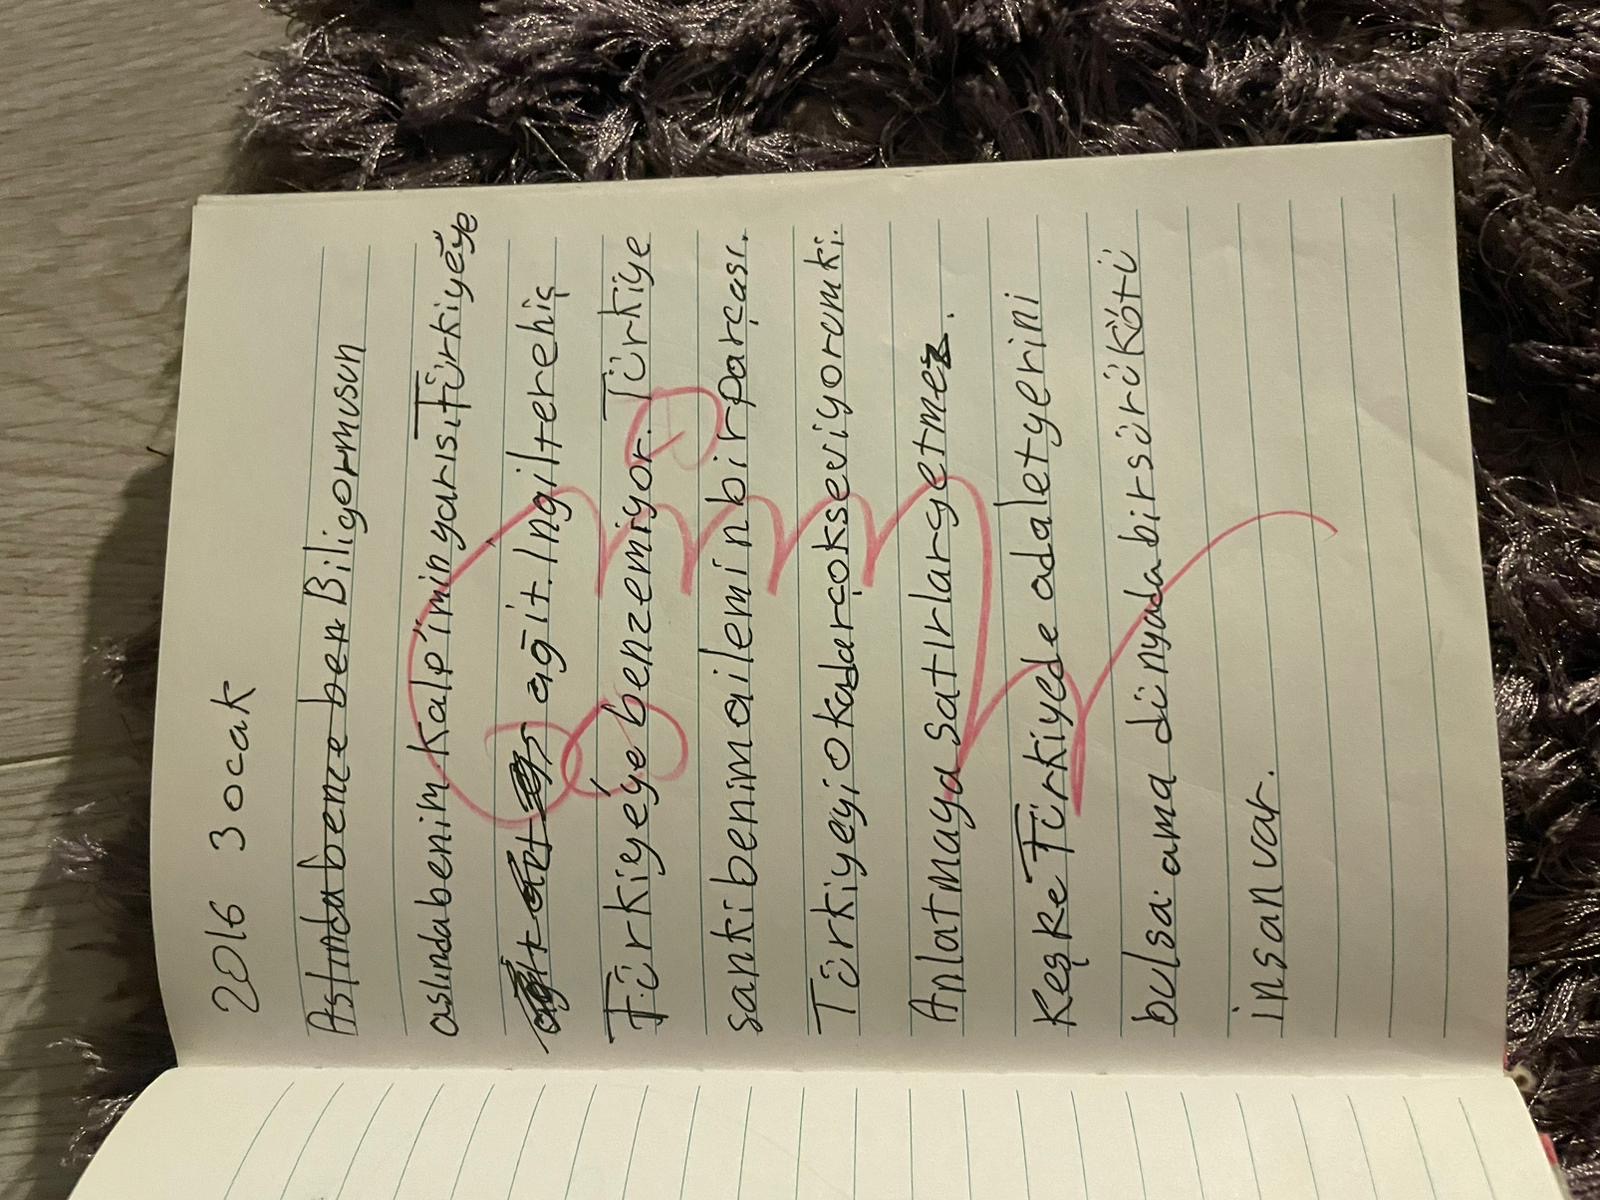 2016 3 ocak
Aslında bence ben Biliyormusun
aslındabenim kalpiminyarısıTürkiyeye
ağit. Ingilterehiç
Türkiyeyebenzemiyor. Türkiye
sankibenimaileminbirparçası.
Türkiyeyiokadarçokseviyorumki.
Anlatmaya satırlaryetmez.
Keşke Türkiyede adaletyerini
bulsa ama dünyadabirsürükötü
insan var.